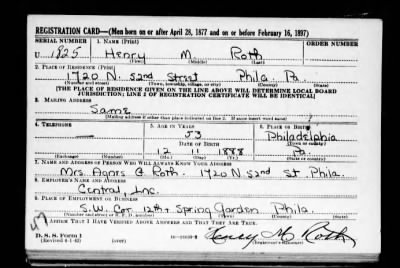 REGISTRATION CARD—(Men born on or after April 28, 1877 and on or before February 16, 1897)
SERIAL NUMBER 1. NAME (Print) ORDER NUMBER
U 1825 Henry M Roth
(First) (Middle) (Last)
2. PLACE OF RESIDENCE (Print)
1720 N. 52nd Street Phila. Pa.
(Number and street) (Town, township, village, or city) (County) (State)
[THE PLACE OF RESIDENCE GIVEN ON THE LINE ABOVE WILL DETERMINE LOCAL BOARD
JURISDICTION; LINE 2 OF REGISTRATION CERTIFICATE WILL BE IDENTICAL]
3. MAILING ADDRESS
Same
[Mailing address if other than place indicated on line 2. If same insert word same]
4. TELEPHONE 5. AGE IN YEARS 6. PLACE OF BIRTH
— 53 Philadelphia
DATE OF BIRTH (Town or county)
12 11 1888 Pa.
(Exchange) (Number) (Mo.) (Day) (Yr.) (State or country)
7. NAME AND ADDRESS OF PERSON WHO WILL ALWAYS KNOW YOUR ADDRESS
Mrs. Agnes G Roth. 1720 N 52nd St. Phila.
8. EMPLOYER'S NAME AND ADDRESS
Central, Inc.
9. PLACE OF EMPLOYMENT OR BUSINESS
S.W. Cor 12th & Spring Garden Phila.
(Number and street or R. F. D. number) (Town) (County) (State)
I AFFIRM THAT I HAVE VERIFIED ABOVE ANSWERS AND THAT THEY ARE TRUE.
D. S. S. Form 1
(Revised 4-1-42) (over) Henry M Roth
(Registrant's signature)